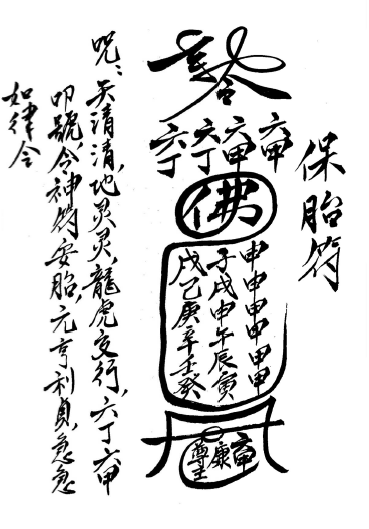 保胎符
令
六甲
六甲
六丁
六丁
佛
甲甲甲甲甲甲
子戌申午辰寅
戊己庚辛壬癸
康
尊王
咒：天清清，地灵灵，龍虎交行，六丁六甲
叩號，令神符安胎，元亨利貞，急急
如律令